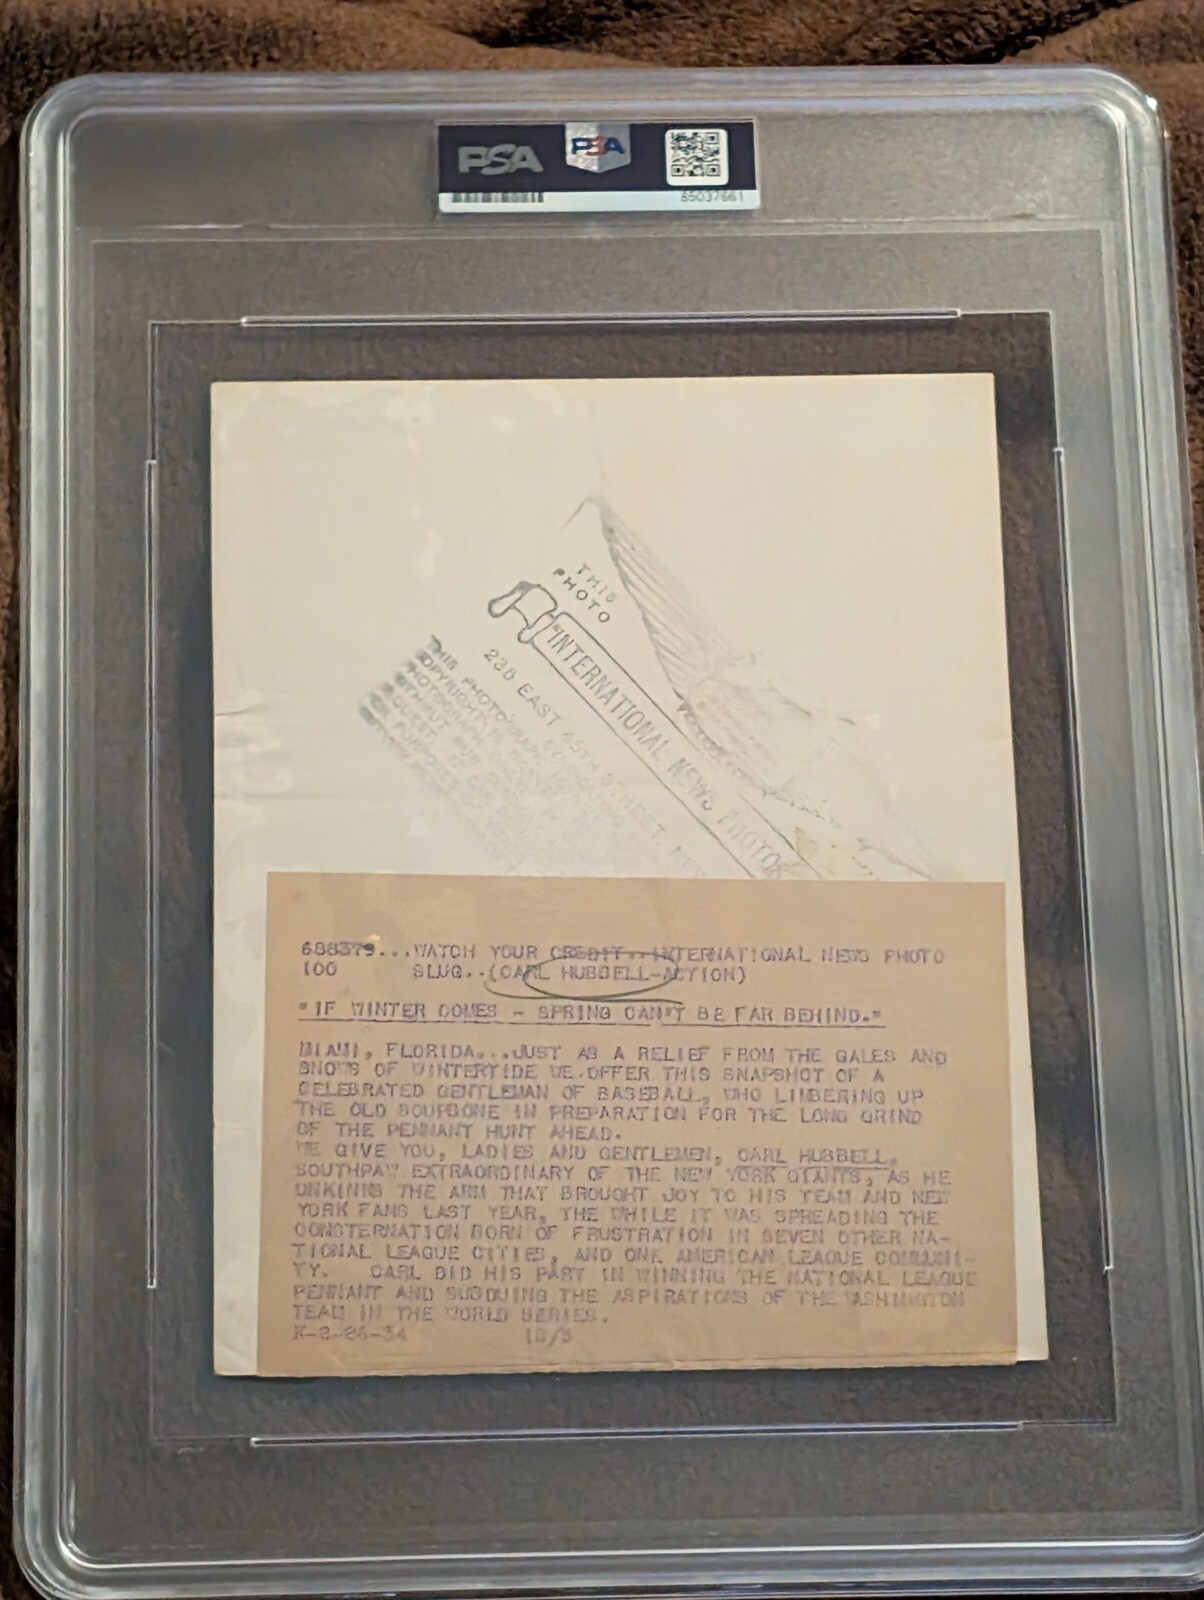 PSA
PSA
85037661
THIS
PHOTO
INTERNATIONAL NEWS PHOTOS
238 EAST STREET
THIS PHOTOGRAPH
688379...WATCH YOUR CREDIT..INTERNATIONAL NEWS PHOTO
100 SLUG..(CARL HUBBELL-ACTION)
"IF WINTER COMES - SPRING CAN'T BE FAR BEHIND."
MIAMI, FLORIDA...JUST AS A RELIEF FROM THE GALES AND
SNOWS OF WINTERTIDE WE OFFER THIS SNAPSHOT OF A
CELEBRATED GENTLEMAN OF BASEBALL, WHO LIMBERING UP
THE OLD SOUPBONE IN PREPARATION FOR THE LONG GRIND
OF THE PENNANT HUNT AHEAD.
WE GIVE YOU, LADIES AND GENTLEMEN, CARL HUBBELL,
SOUTHPAW EXTRAORDINARY OF THE NEW YORK GIANTS, AS HE
UNKINKS THE ARM THAT BROUGHT JOY TO HIS TEAM AND NEW
YORK FANS LAST YEAR, THE WHILE IT WAS SPREADING THE
CONSTERNATION BORN OF FRUSTRATION IN SEVEN OTHER NA-
TIONAL LEAGUE CITIES, AND ONE AMERICAN LEAGUE COMMUNI-
TY. CARL DID HIS PART IN WINNING THE NATIONAL LEAGUE
PENNANT AND SUBDUING THE ASPIRATIONS OF THE WASHINGTON
TEAM IN THE WORLD SERIES.
K-2-26-34